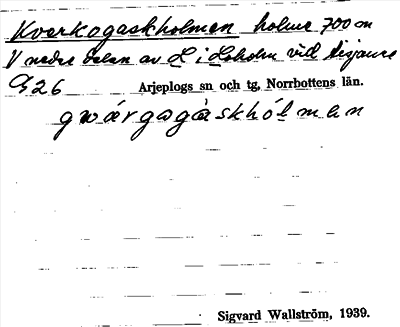 Kverkogaskholmen holme 700 m
V nedre delen av L i Loholm vid Sirjaure
G 26 Arjeplogs sn och tg, Norrbottens län.
gwárgogàskhól̲men
Sigvard Wallström, 1939.